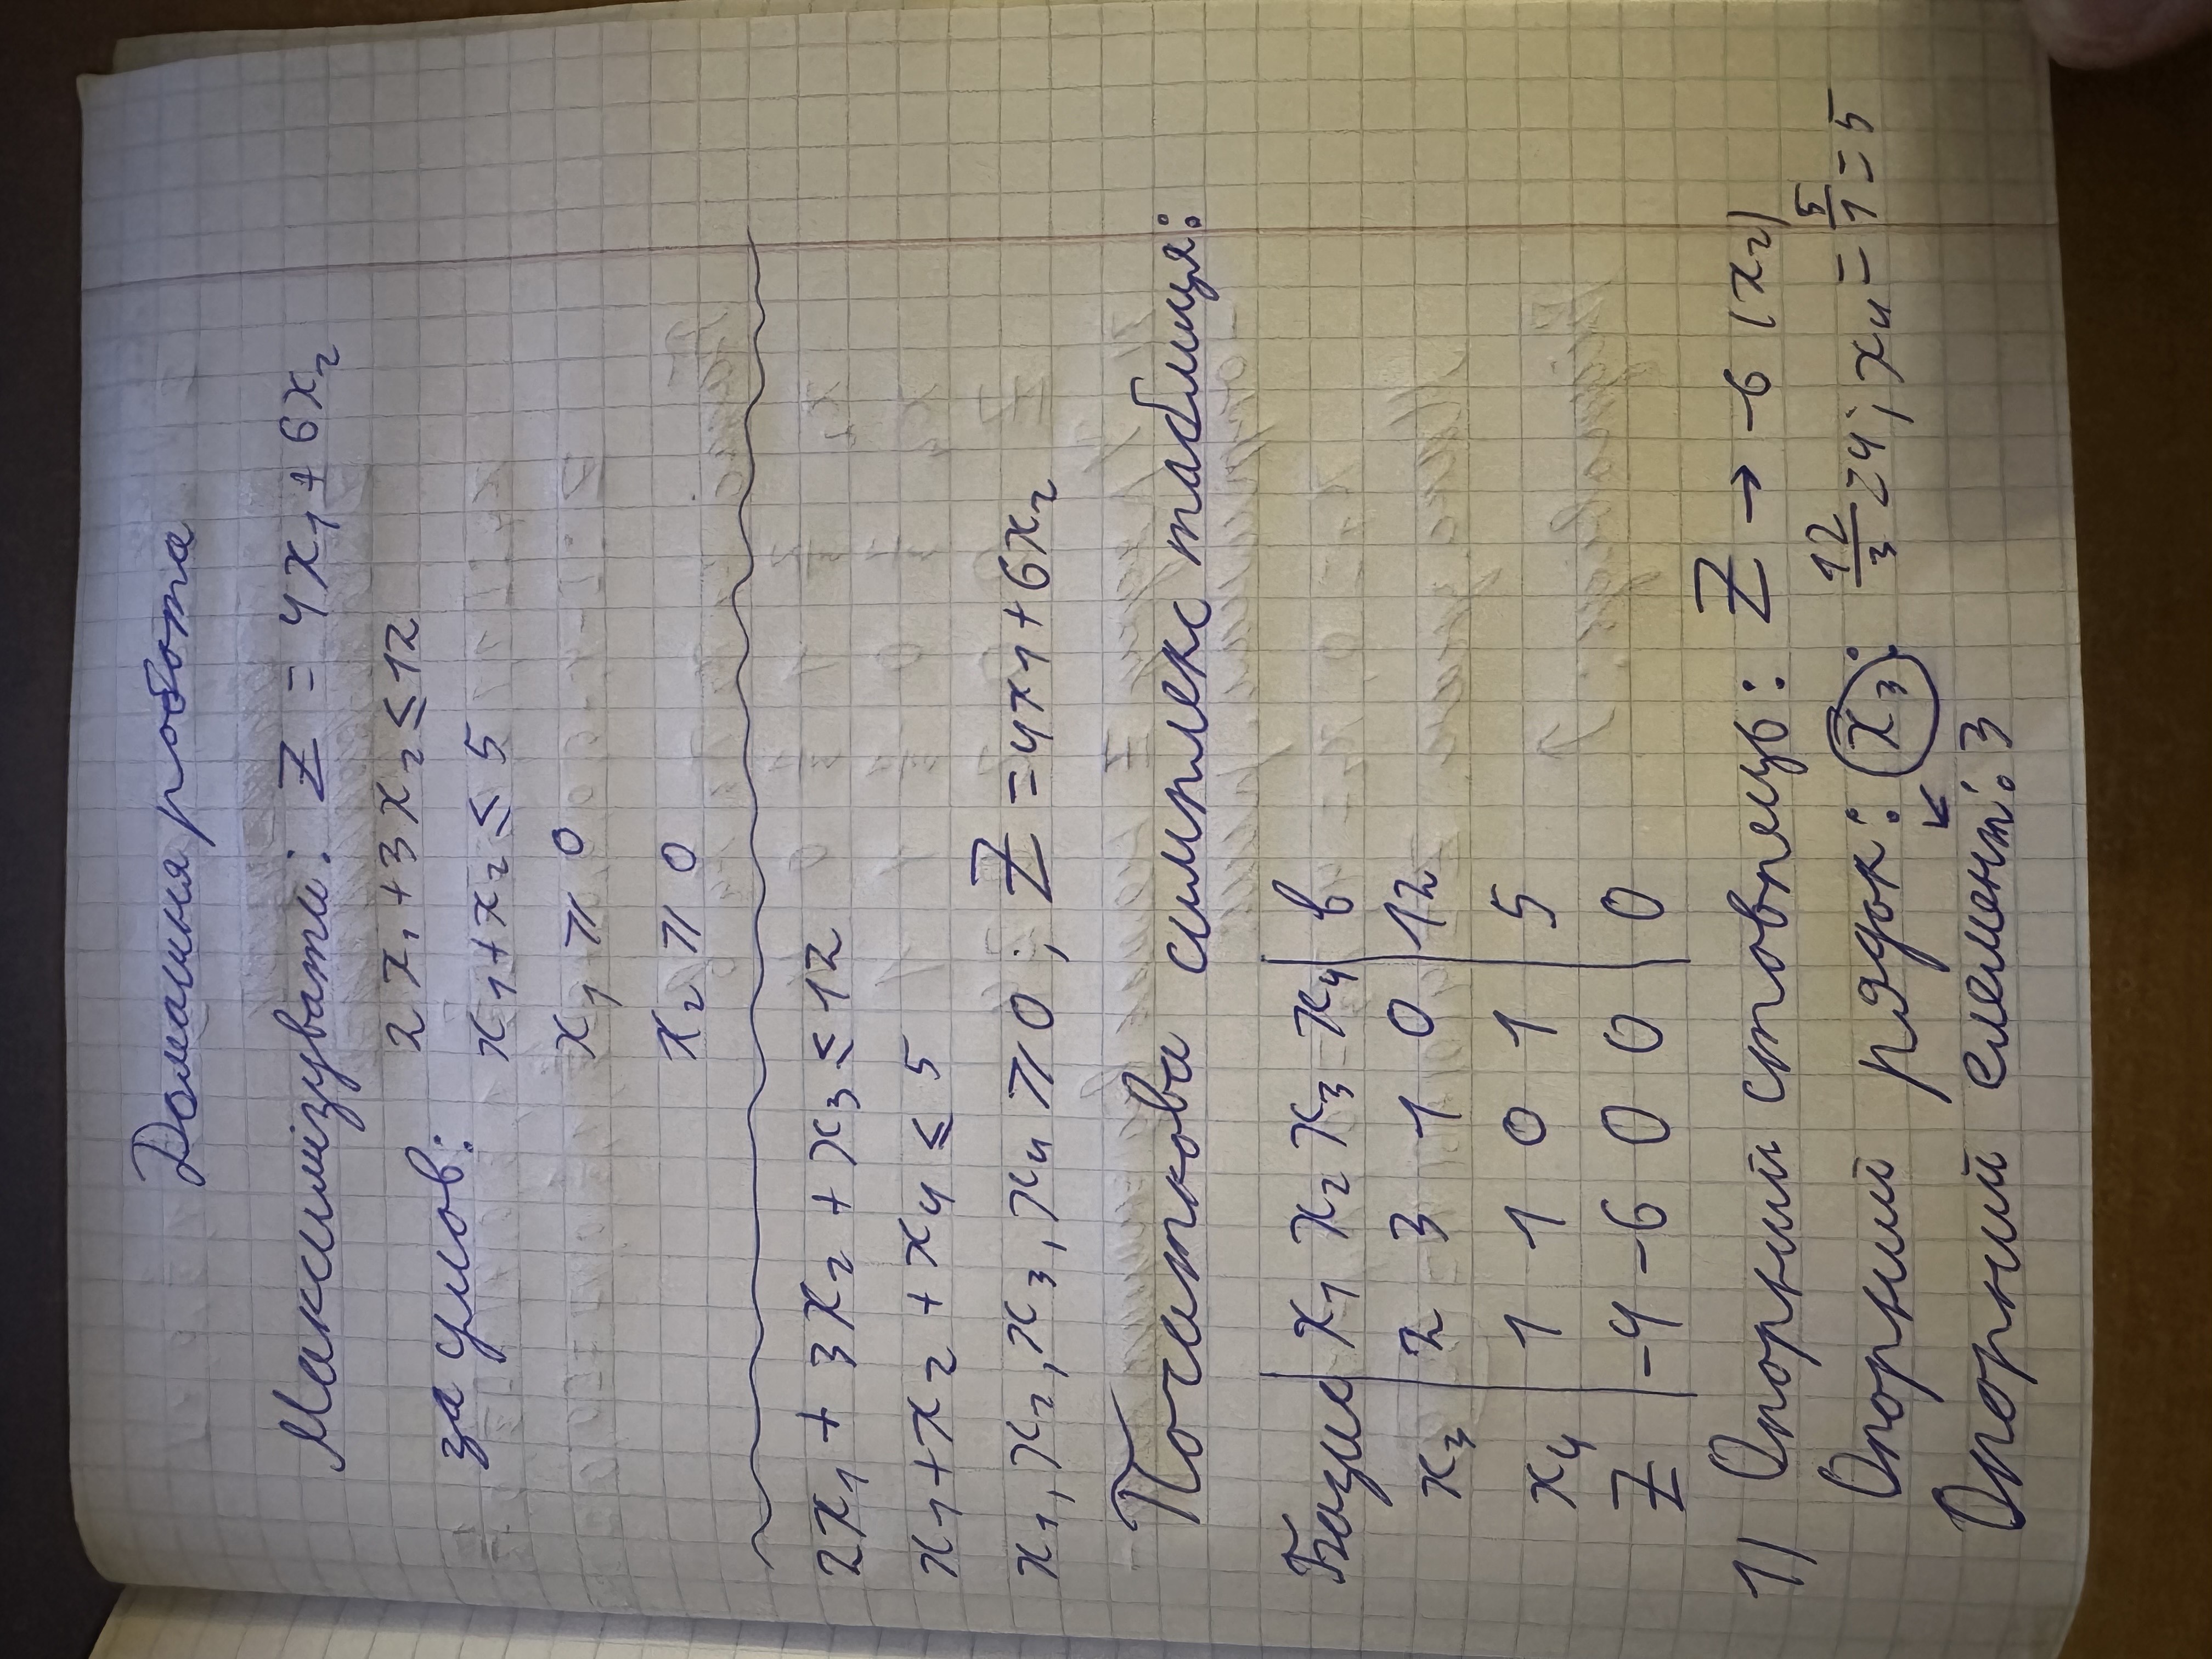 Домашня робота
Максимізувати: Z = 4x₁ + 6x₂
за умов:
2x₁ + 3x₂ ≤ 12
x₁ + x₂ ≤ 5
x₁ ⩾ 0
x₂ ⩾ 0
2x₁ + 3x₂ + x₃ ≤ 12
x₁ + x₂ + x₄ ≤ 5
x₁, x₂, x₃, x₄ ⩾ 0 ; Z = 4x₁ + 6x₂
Початкова симплекс таблиця:
Базис x₁ x₂ x₃ x₄ в
x₃ 2 3 1 0 12
x₄ 1 1 0 1 5
Z -4 -6 0 0 0
1) Опорний стовпець: Z → -6 (x₂)
Опорний рядок: x₃: 12/3 = 4; x₄ = 5/1 = 5
Опорний елемент: 3